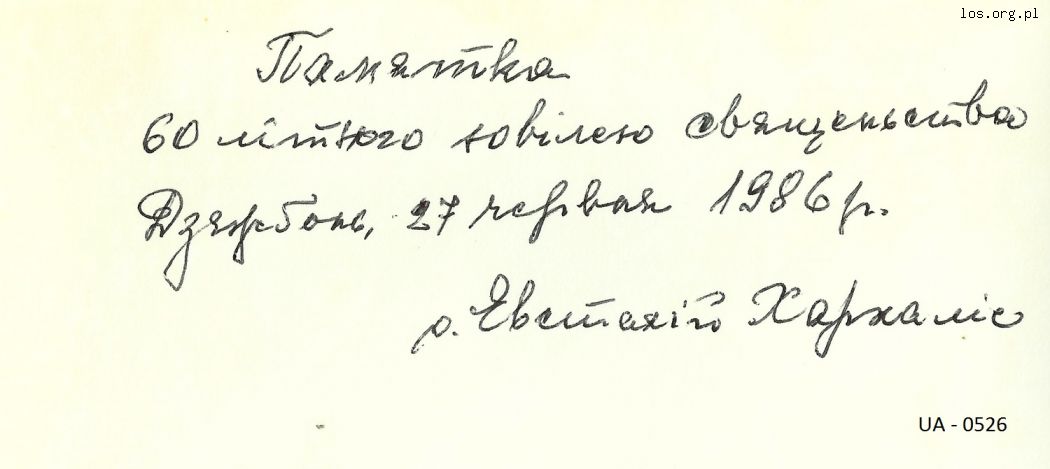 los.org.pl
Памятка
60 літнього ювілею священьства
Дзяжбонь, 27 червня 1986 р.
о. Евстахій Хархаліс
UA - 0526